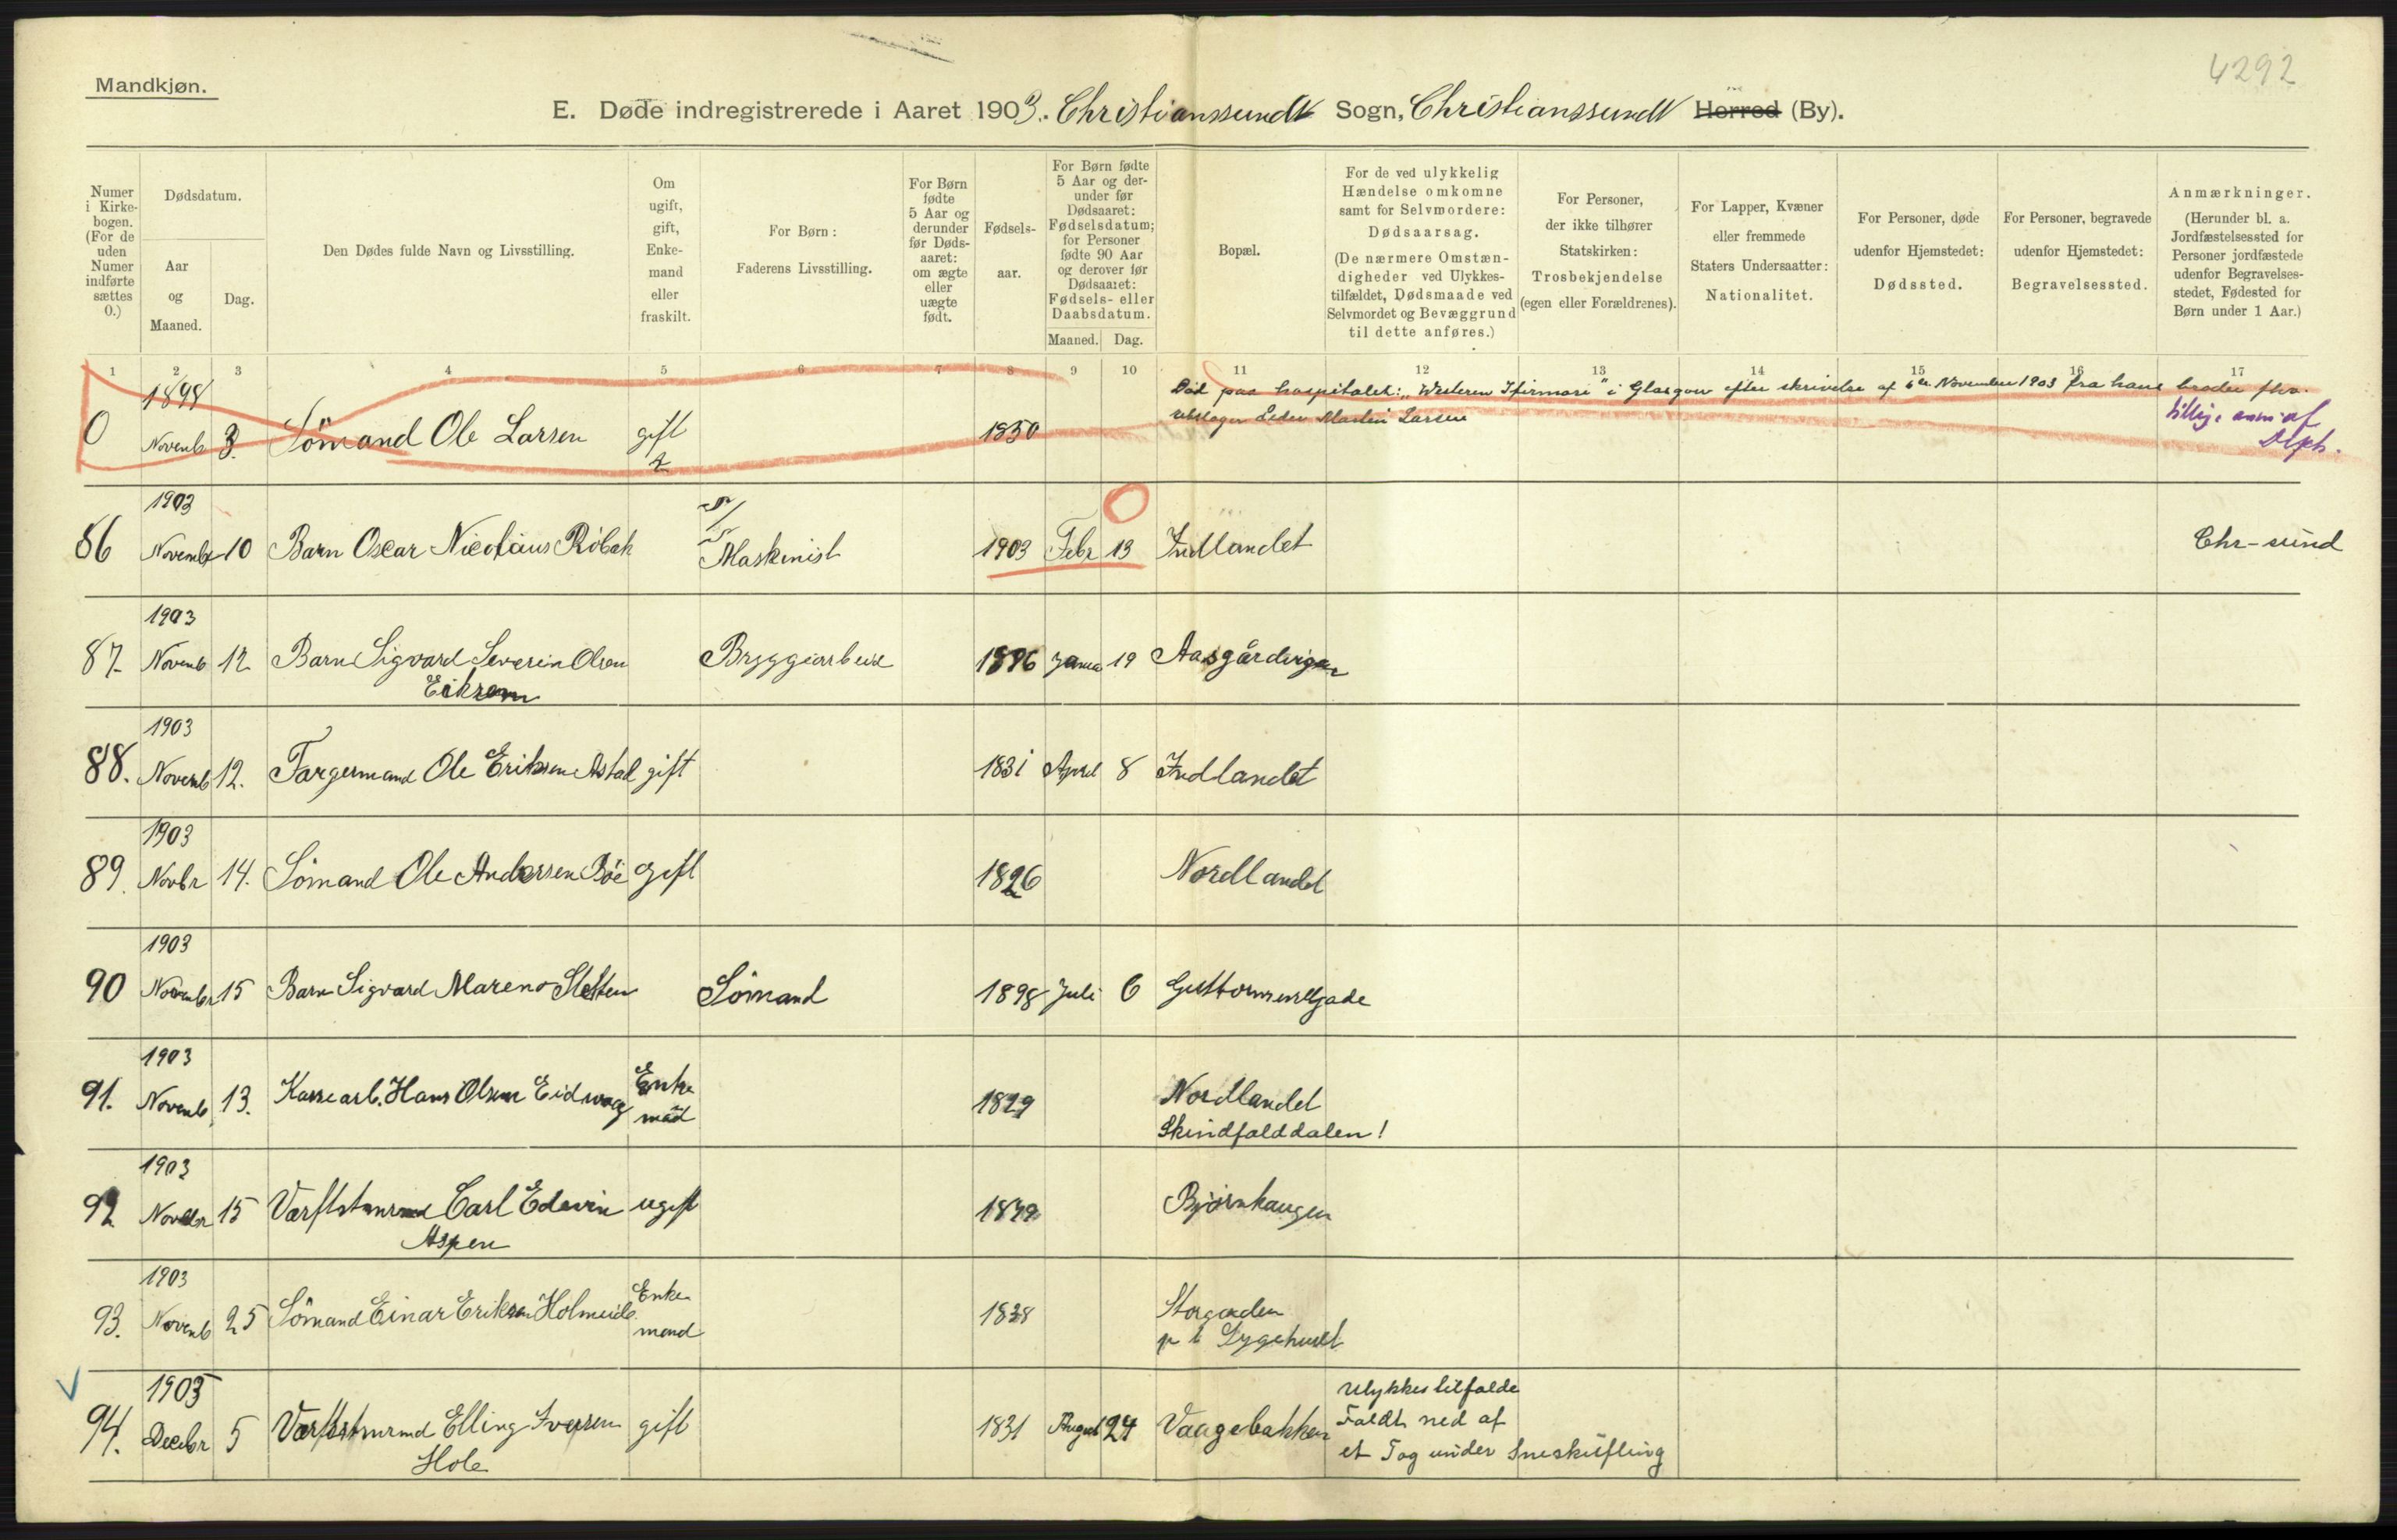 4292
Mandkjøn.
E. Døde indregistrerede i Aaret 1903. Christianssunds Sogn, Christianssunds Herred (By).
Numer i Kirkebogen. (For de uden Numer indførte sættes 0.)
Dødsdatum.
Aar og Maaned.
Dag.
Den Dødes fulde Navn og Livsstilling.
Om ugift, gift, Enkemand eller fraskilt.
For Børn: Faderens Livsstilling.
For Børn fødte 5 Aar og derunder før Dødsaaret: om ægte eller uægte født.
Fødselsaar.
For Børn fødte 5 Aar og derunder før Dødsaaret: Fødselsdatum; for Personer fødte 90 Aar og derover før Dødsaaret: Fødsels- eller Daabsdatum.
Maaned. Dag.
Bopæl.
For de ved ulykkelig Hændelse omkomne samt for Selvmordere: Dødsaarsag. (De nærmere Omstændigheder ved Ulykkestilfældet, Dødsmaade ved Selvmordet og Bevæggrund til dette anføres.)
For Personer, der ikke tilhører Statskirken: Trosbekjendelse (egen eller Forældrenes).
For Lapper, Kvæner eller fremmede Staters Undersaatter: Nationalitet.
For Personer, døde udenfor Hjemstedet: Dødssted.
For Personer, begravede udenfor Hjemstedet: Begravelsessted.
Anmærkninger. (Herunder bl. a. Jordfæstelsessted for Personer jordfæstede udenfor Begravelsesstedet, Fødested for Børn under 1 Aar.)
1 2 3 4 5 6 7 8 9 10 11 12 13 14 15 16 17
Död paa hospitalet: "Western Ifirmari" i Glasgow efter skrivelse af 6te November 1903 fra hans broder
Peder Martin Larsen
tillige anm. af
1898
0 Novemb 3. Sömand Ole Larsen gift 1850
1903
86 Novembr 10 Barn Oscar Nicolaus Röbek Maskinist 1903 Febr 13 Indlandet Chr-sund
1903
87. Novemb 12 Barn Sigvard Severin Olsen Bryggearbeid 1896 Janua 19 Aasgårdvigen
Eikrem
1903
88. Novemb 12. Fargermand Ole Eriksen Astad gift 1831 April 8 Indlandet
1903
89. Novbr 14. Sömand Ole Andersen Böe gift 1826 Nordlandet
1903
90 Novembr 15 Barn Sigvard Mareno Sletten Sömand 1898 Juli 6 Guttormsensgade
1903
91. Novemb 13. Hans Olsen Eidsvaag Enke
mand 1829 Nordlandet
Skindfalddalen!
1903
92 Novbr 15 Værftstømrmd Carl Edevin ugift Björnhaugen
Aspen
1903
93. Novemb 25 Sömand Einar Eriksen Holmeide Enke
mand 1838 Storgaden
p t Sygehuset
1903
94. Decebr 5 Værftstømrmd Elling Iversen gift 1831 August 24 Vaagebakken
Hole
Ulykkestilfælde
Faldt ned af
et Tag under Sneskufling